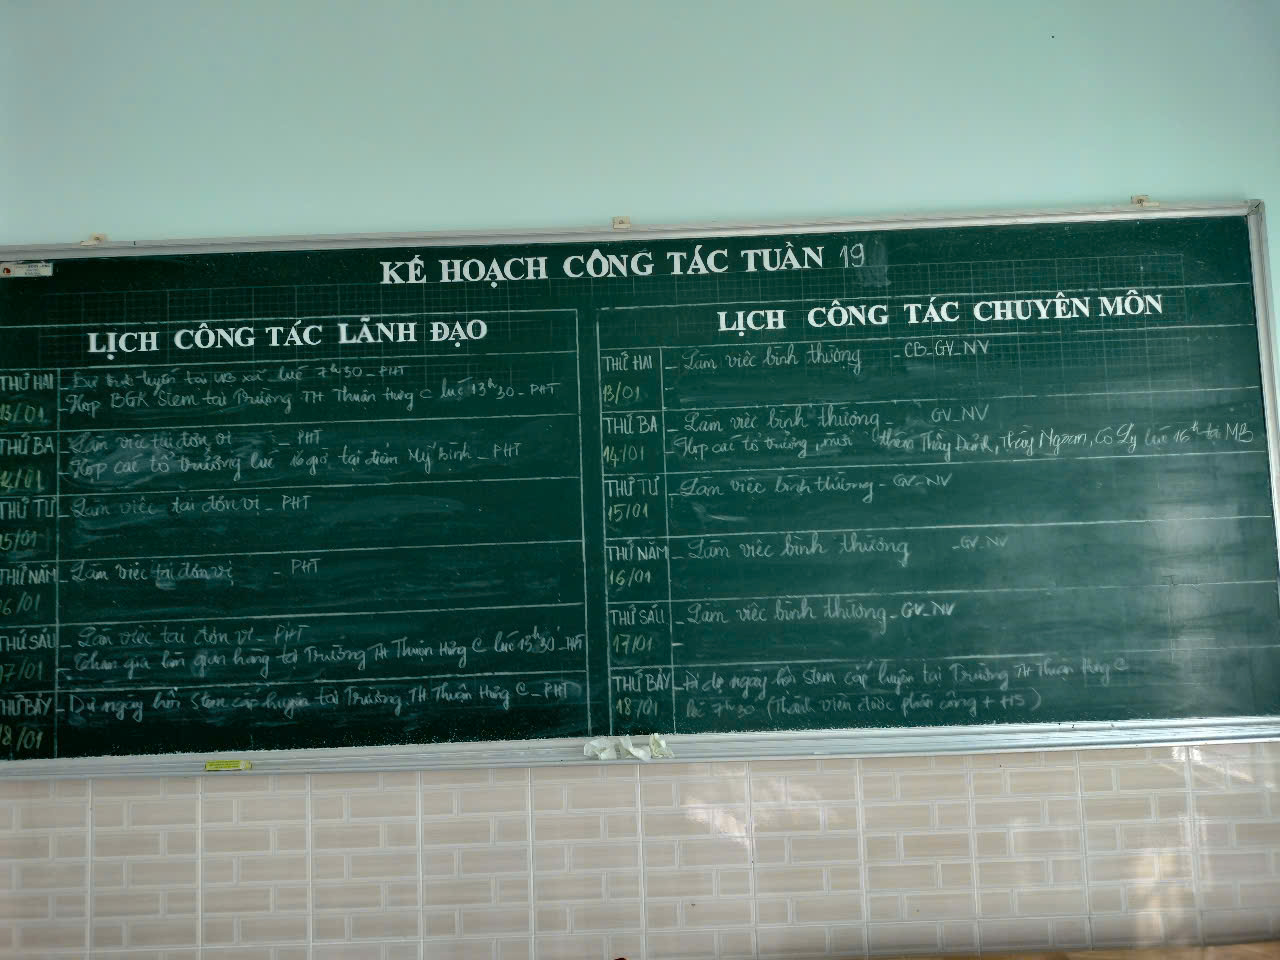 KẾ HOẠCH CÔNG TÁC TUẦN 19
LỊCH CÔNG TÁC LÃNH ĐẠO
THỨ HAI - Dự trực tuyến tại UB xã lúc 7h30 - PHT
13/01 - Họp BGK Stem tại Trường TH Thuận Hưng C lúc 13h30 - PHT
THỨ BA - Làm việc tại đơn vị - PHT
14/01 - Họp các tổ trưởng lúc 16 giờ tại điểm Mỹ Bình - PHT
THỨ TƯ - Làm việc tại đơn vị - PHT
15/01
THỨ NĂM - Làm việc tại đơn vị - PHT
16/01
THỨ SÁU - Làm việc tại đơn vị - PHT
17/01 - gia gian hàng tại Trường TH Thuận Hưng C lúc 13h30' - PHT
THỨ BẢY - Dự ngày hội Stem cấp huyện tại Trường TH Thuận Hưng C - PHT
18/01
LỊCH CÔNG TÁC CHUYÊN MÔN
THỨ HAI - Làm việc bình thường - CB-GV-NV
13/01 -
THỨ BA - Làm việc bình thường GV-NV
14/01 - Họp các tổ trưởng, mời thêm Thầy Thầy Cô Ly lúc 16h tại MB
THỨ TƯ - Làm việc bình thường - GV-NV
15/01
THỨ NĂM - Làm việc bình thường - GV-NV
16/01
THỨ SÁU - Làm việc bình thường - GV-NV
17/01 -
THỨ BẢY - Đi dự ngày hội Stem cấp huyện tại Trường TH Thuận Hưng C
18/01 lúc 7h30' (Thành viên được phân công + HS)